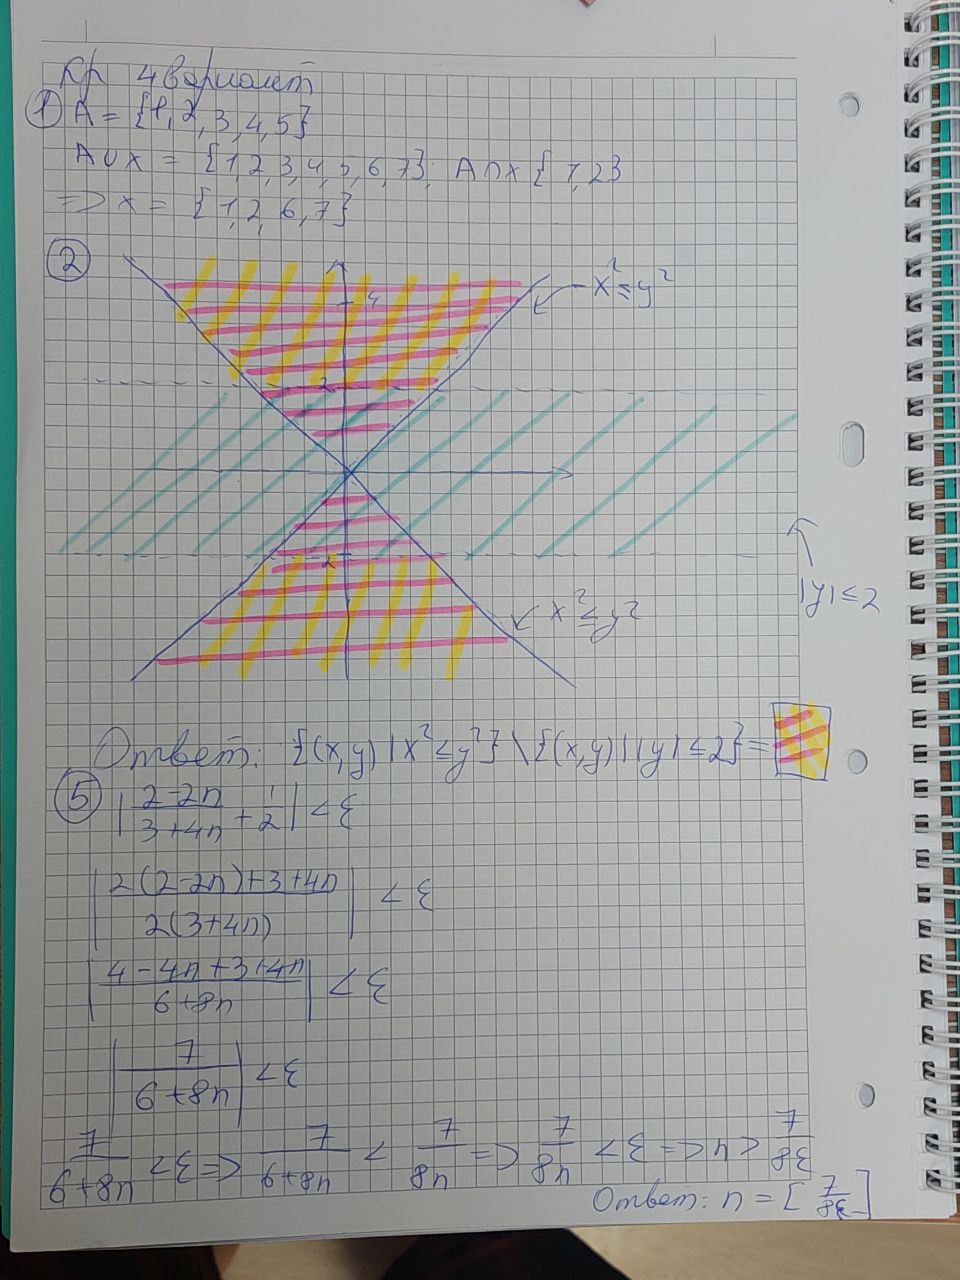 Кр 4 вариант
① A = {1, 2, 3, 4, 5}
A∪x = {1, 2, 3, 4, 5, 6, 7}; A∩x {1, 2}
=> x = {1, 2, 6, 7}
②
x² ≤ y²
4
2
2
|y| ≤ 2
x² ≤ y²
Ответ: {(x,y) | x² ≤ y²} \ {(x,y) | |y| ≤ 2} =
⑤ |(2-2n)/(3+4n) + 1/2| < ε
|(2(2-2n)+3+4n)/(2(3+4n))| < ε
|(4-4n+3+4n)/(6+8n)| < ε
|7/(6+8n)| < ε
7/(6+8n) < ε => 7/(6+8n) < 7/8n => 7/8n < ε => n > 7/8ε
Ответ: n = [7/8ε]